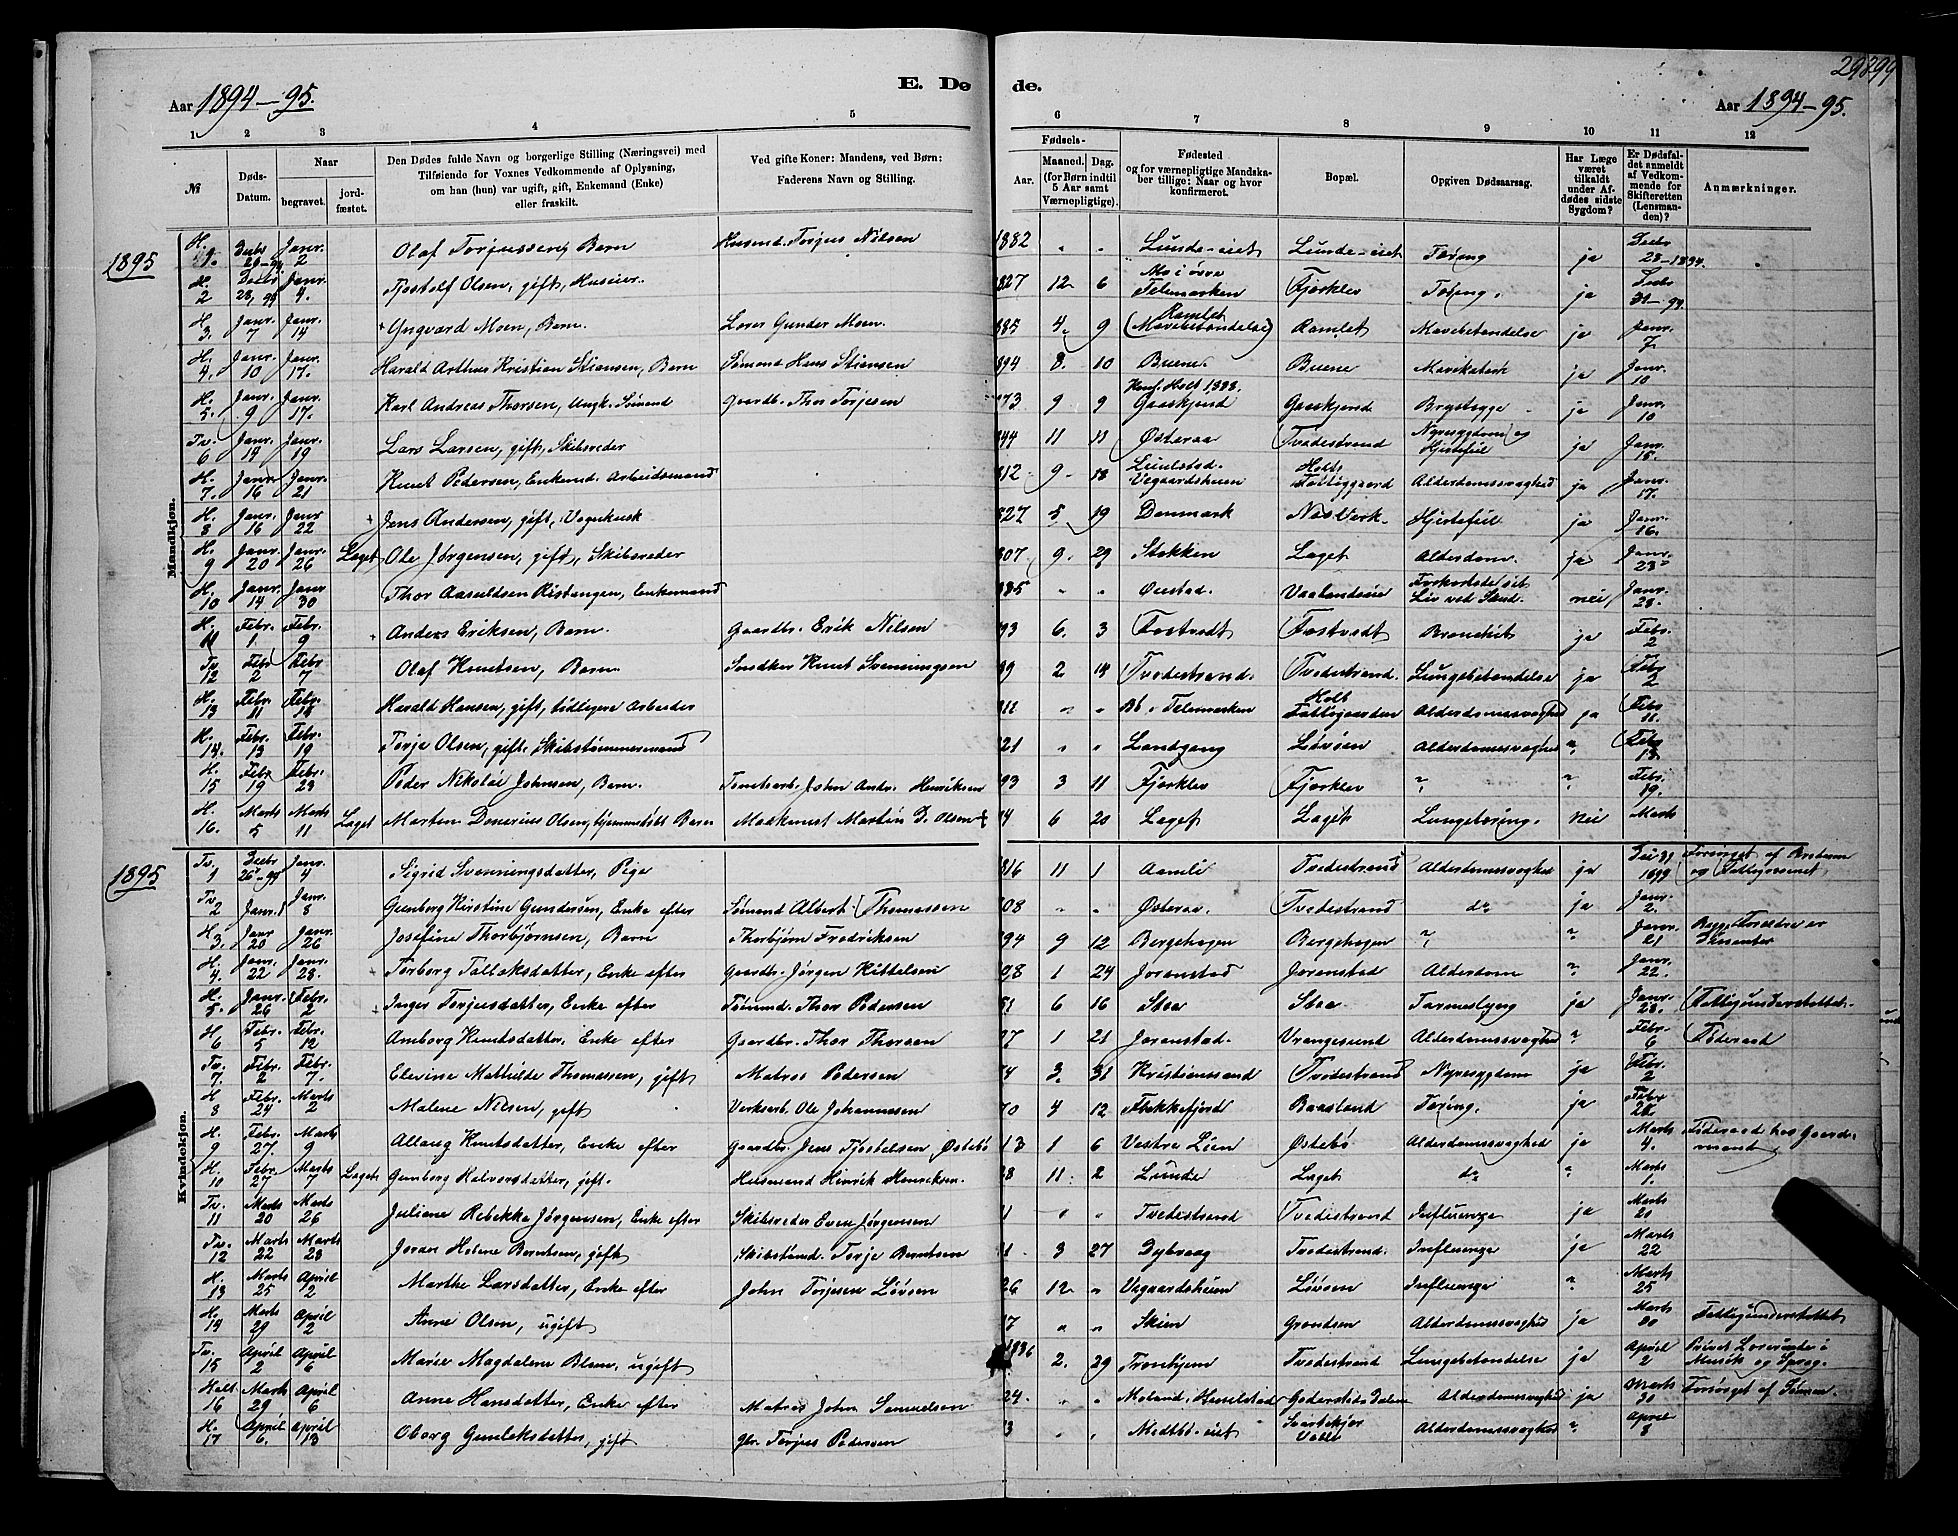 29899
E. Dø de.
Aar 1894-95. Aar 1894-95.
1 2 3 4 5 6 7 8 9 10 11 12
№ Døds-Datum. Naar begravet. jordfæstet. Den Dødes fulde Navn og borgerlige Stilling (Næringsvei) med Tilføiende for Voxnes Vedkommende af Oplysning, om han (hun) var ugift, gift, Enkemand (Enke) eller fraskilt. Ved gifte Koner: Mandens, ved Børn: Faderens Navn og Stilling. Fødsels- Aar. Maaned. Dag. (for Børn indtil 5 Aar samt Værnepligtige). Fødested og for værnepligtige Mandskaber tillige: Naar og hvor konfirmeret. Bopæl. Opgiven Dødsaarsag. Har Læge været tilkaldt under Afdødes sidste Sygdom? Er Dødsfaldet anmeldt af Vedkommende for Skifteretten (Lensmanden)? Anmærkninger.
1895
Mandkjøn.
H. 1. Decbr Janr. 2 Olaf Torjussen, Barn Husmd. Torjus Nilsen 1882 " " Lunde-eiet Lunde-eiet Tæring ja Decbr 28-1894.
H. 2 Decbr 28, 94 Janr. 4. Tjostolf Olsen, gift, Huseier. 827 12 6 Mo i øvre Telemarken Fjærklev Tæring. ja Decbr 31-94.
H. 3. Janr. 7 Janr. 14 + Yngvard Moen, Barn. Lærer Gunder Moen. 885 4. 9 Ramlet (Mavebetændelse) Ramlet Mavebetændelse ja Janr. 7.
H. 4. Janr. 10 Janr. 17. Harald Arthur Kristian Stiansen, Barn Sømand Hans Stiansen 894 8. 10 Buene. Buene Mavekatarh ja Janr. 10
H. 5. Janr. 9 Janr. 17. Karl Andreas Thorsen, Ungk. Sømand Gaardb. Thor Torjesen 873 9 9 Konf. Holt 1888. Gaaskjend Gaaskjend Brystsyge ja Janr. 10
Tv. 6 Janr. 14 Janr. 19 Lars Larsen, gift, Skibsreder 844 11 11 Østeraa Tvedestrand Nyresygdom og Hjertefeil ja Janr. 15.
H. 7. Janr. 16 Janr. 21 Knut Pedersen, Enkemd. Arbeidsmand 812 9 18 Vegaardsheien Holts Fattiggaard Alderdomssvaghed ja Janr. 17.
H. 8 Janr. 16 Janr 22 + Jens Andersen, gift, Vognkusk 827 5 19 Danmark Næs Verk. Hjertefeil ja Janr. 16.
H. 9 Janr. 20 Janr. 26 Laget Ole Jørgensen, gift, Skibsreder 807 9. 29 Stokken Laget Alderdom. ja Janr. 23
H. 10 Janr. 14 Janr 30 Thor Aasuldsen Ristangen, Enkemand 835 " " Ønestad. Vaalandseie Forkortede sit Liv ved Skud. nei, Janr. 28.
H. 11 Febr. 1 Febr. 9 + Anders Eriksen, Barn. Gaardbr. Erik Nilsen 93 6. 3 Fostvedt Fostvedt Bronchit ja Febr. 2
Tv 12 Febr 2 Febr 7 Olaf Knutsen, Barn. Snedker Knut Svenningsen 89 2 14 Tvedestrand. Tvedestrand. Lungebetændelse ja Febr 2
H. 13 Febr. 11 Febr. 18 Harald Hansen, gift, tidligere Arbeider 811 " " Bø i Telemarken Holt Fattiggaarden Alderdomssvaghed ja Febr 11.
H. 14. Febr. 13 Febr. 19 Torje Olsen, gift, Skibstømmermand 21 " " Landgang Løvåsen Alderdomssvaghed " Febr 13.
H. 15 Febr 19 Febr. 23 Peder Nikolai Johnsen, Barn. Tomtearb. John Andr. Henriksen 93 3 11 Fjærklev Fjærklev " " Febr. 19.
H. 16. Marts 5 Marts 11 Laget Marten Denerius Olsen, hjemmedøbt Barn Maskinist Martin D. Olsen 94 6 20 Laget Laget Lungetæring. nei Marts
1895
Kvindekjøn.
Tv. 1 Decbr 26-94 Janr. 4 Sigrid Svenningsdatter, Pige 816 11 1 Aamli Tvedestrand Alderdomssvaghed ja Forsørget af og Fattigvæsenet.
Tv. 2 Janr. 1 Janr. 8 Gunborg Kirstine Gundersen, Enke efter Sømand Albert Thomassen 808 " " Østeraa. Tvedestrand do ja Janr. 2.
H. 3. Janr 20 Janr. 26 Josefine Thorbjørnsen, Barn Thorbjørn Fredriksen 894 9 12 Bergehagen Bergehagen " " Janr. 21 Begge Forældre er Dissenter
H. 4. Janr. 22 Janr. 28. Torborg Tallaksdatter, Enke efter Gaardbr. Jørgen Kittelsen 08 1 24 Jorenstad Jorenstad Alderdom " Janr. 22.
H. 5. Janr. 26 Febr. 2 + Inger Torjusdatter, Enke efter Tømmd. Thor Pedersen 81 6 16 Staa Staa Tarmeslyng ja Janr. 28. Fattigunderstøttet.
H. 6 Febr. 5 Febr. 12 Amborg Knutsdatter, Enke efter Gaardbr. Thor Thorsen 27 1 21 Jorenstad. Vrangesund Alderdomssvaghed " Febr. 6 Føderaad
Tv. 7. Febr. 2 Febr. 7. Elevine Mathilde Thomassen, gift Matros Pedersen 74 3. 31 Kristianssand Tvedestrand Nyresygdom ja Febr. 2
H 8 Febr. 24 Marts 2 Malene Nilsen, gift Verksarb. Ole Johannessen 70 4 12 Flekkefjord Baasland Tæring. ja Febr
H. 9 Febr. 27. Marts 9 Allaug Knutsdatter, Enke efter Gaardbr. Jens Tjostelsen Østebø 13 1 6 Vestre Lien Østebø Alderdomssvaghed ja Marts 4. Føderaad hos Gaardmand
H. 10 Febr 27 Marts 7 Laget Gunborg Halvorsdatter, gift. Husmand Hinrik Henriksen. 28 11. 2 Lunde Laget do " Marts 1.
Tv. 11 Marts 20 Marts 26 Juliane Rebekka Jørgensen, Enke efter Skibsreder Even Jørgensen 1 " " Tvedestrand Tvedestrand Influenza ja Marts 21
Tv. 12 Marts 22 Marts 28 Joran Helene Berntsen, gift Skibstømd. Torje Berntsen 1 3 27 Dybvaag Tvedestrand. Influenza ja Marts 22
H. 13 Marts 25 April 2 Marthe Larsdatter, Enke efter John Torjesen Løvåsen 26 12 " Vegaardsheien Løvåsen Influenza " Marts 25
H. 14 Marts 29 April 2 Anne Olsen, ugift 17 " " Skien Grændsen Alderdomssvaghed ja Marts 30 Fattigunderstøttet
Tv. 15 April 2 April 6 Marie Magdalene Blom, ugift 1836 2. 29 Tronhjem Tvedestrand Lungebetændelse ja April 2 Privat Lærerinde i Musik og Sprog.
Holt 16 Marts 29 April 6 Anne Hansdatter, Enke efter Matros John Samuelsen 24 " " Moland Goderstad Dalene Alderdomssvaghed ja Marts 30 Forsørget af Sønnen.
H. 17 April 6. April 13 Oborg Gunleksdatter, gift Gbr. Torjus Pedersen 3 " " Midtbø-eiet Svartekjær Alderdomssvaghed " April 8